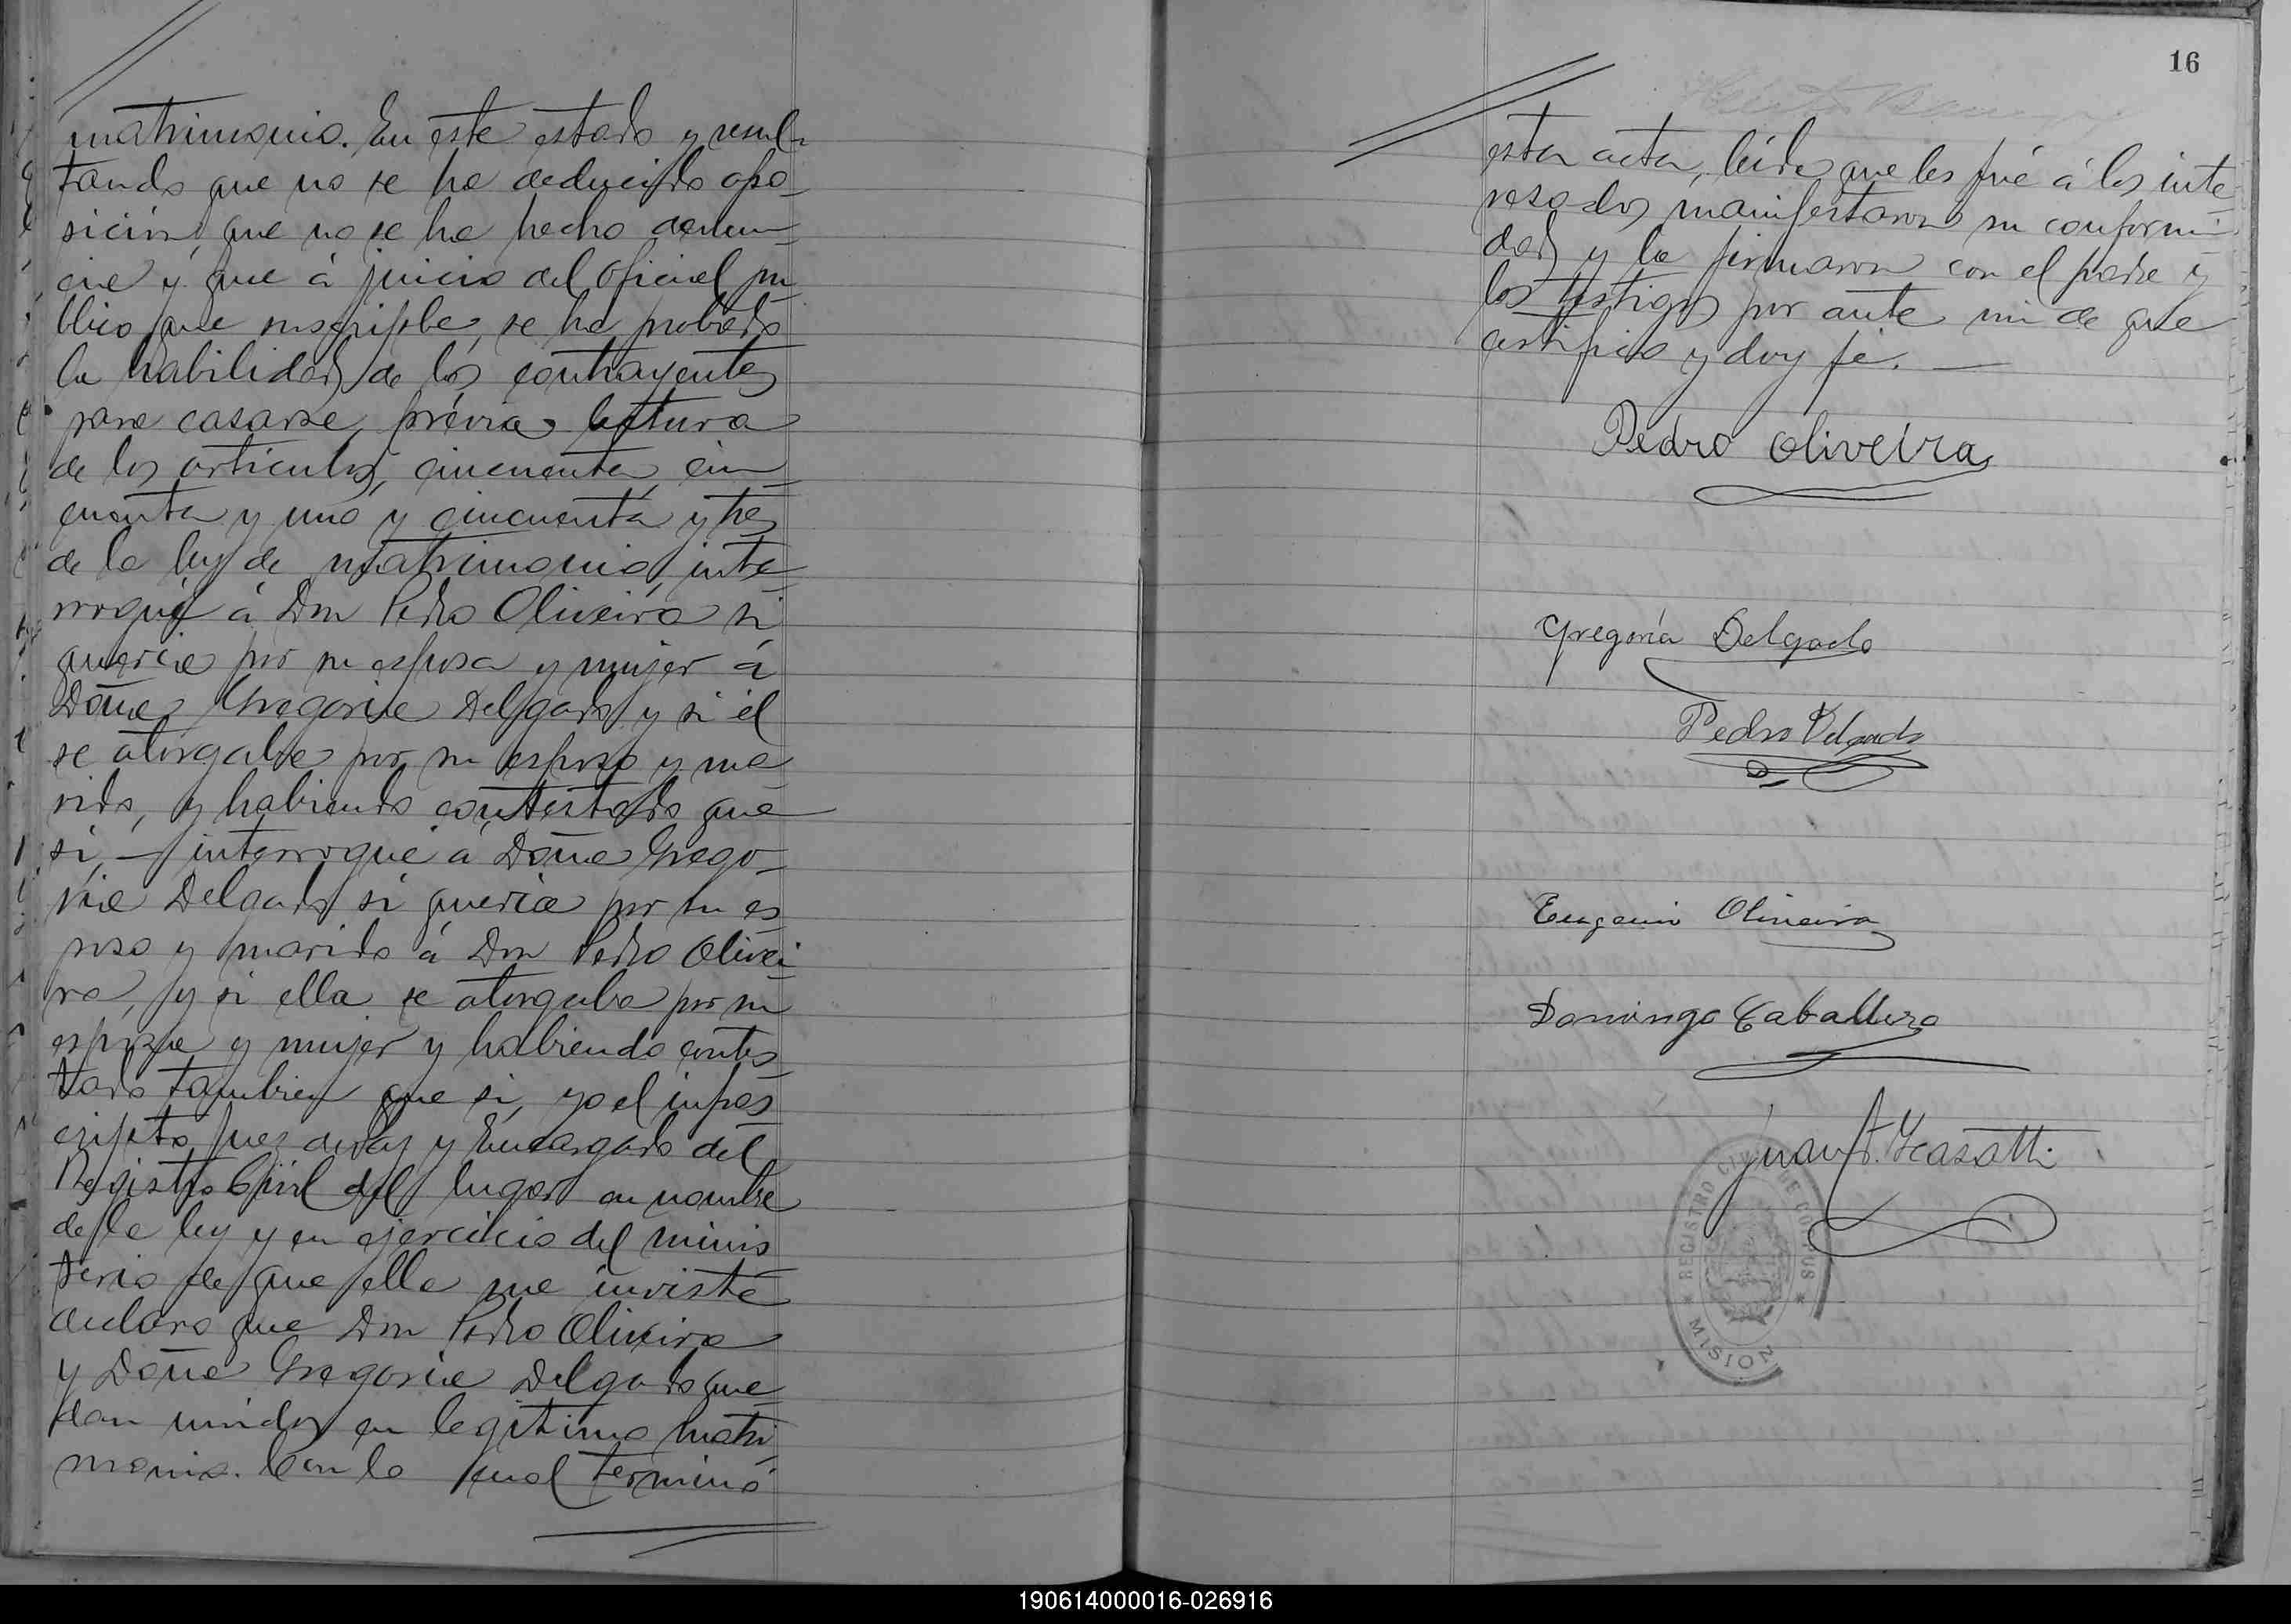 matrimonio. En este estado y resul-
tando que no se ha deducido opo-
sición, que no se ha hecho denun-
cia y que á juicio del oficial pú-
blico que suscribe, se ha probado
la habilidad de los contrayentes
para casarse, prévia lectura
de los articulos, cincuenta, cin-
cuenta y uno y cincuenta y tres
de la ley de matrimonio, inte-
rrogué á Don Pedro Oliveira si
queria por su esposa y mujer á
Doña Gregoria Delgado y si él
se otorgaba por su esposo y ma
rido, y habiendo contestado que
si, — interrogué á Doña Grego-
ria Delgado si queria por su es
poso y marido á Don Pedro Olivei
ra, y si ella se otorgaba por su
esposa y mujer y habiendo contes
tado tambien que si, yo el infras
cripto Juez de Paz y Encargado del
Registro Civil del lugar en nombre
de la ley y en ejercicio del minis
terio de que ella me inviste
declaro que Don Pedro Oliveira
y Doña Gregoria Delgado que-
dan unidos en legitimo matri
monio. Con lo cual terminó
16
esta acta, leida que les fué á los inte-
resados manifestaron su conformi-
dad y la firmaron con el padre y
los testigos por ante mi de que
certifico y doy fé. —
Pedro Oliveira
Gregoria Delgado
Pedro Delgado
Eugenio Oliveira
Domingo Caballero
Juan
REGISTRO CIVIL DE CORPUS
MISION
190614000016-026916